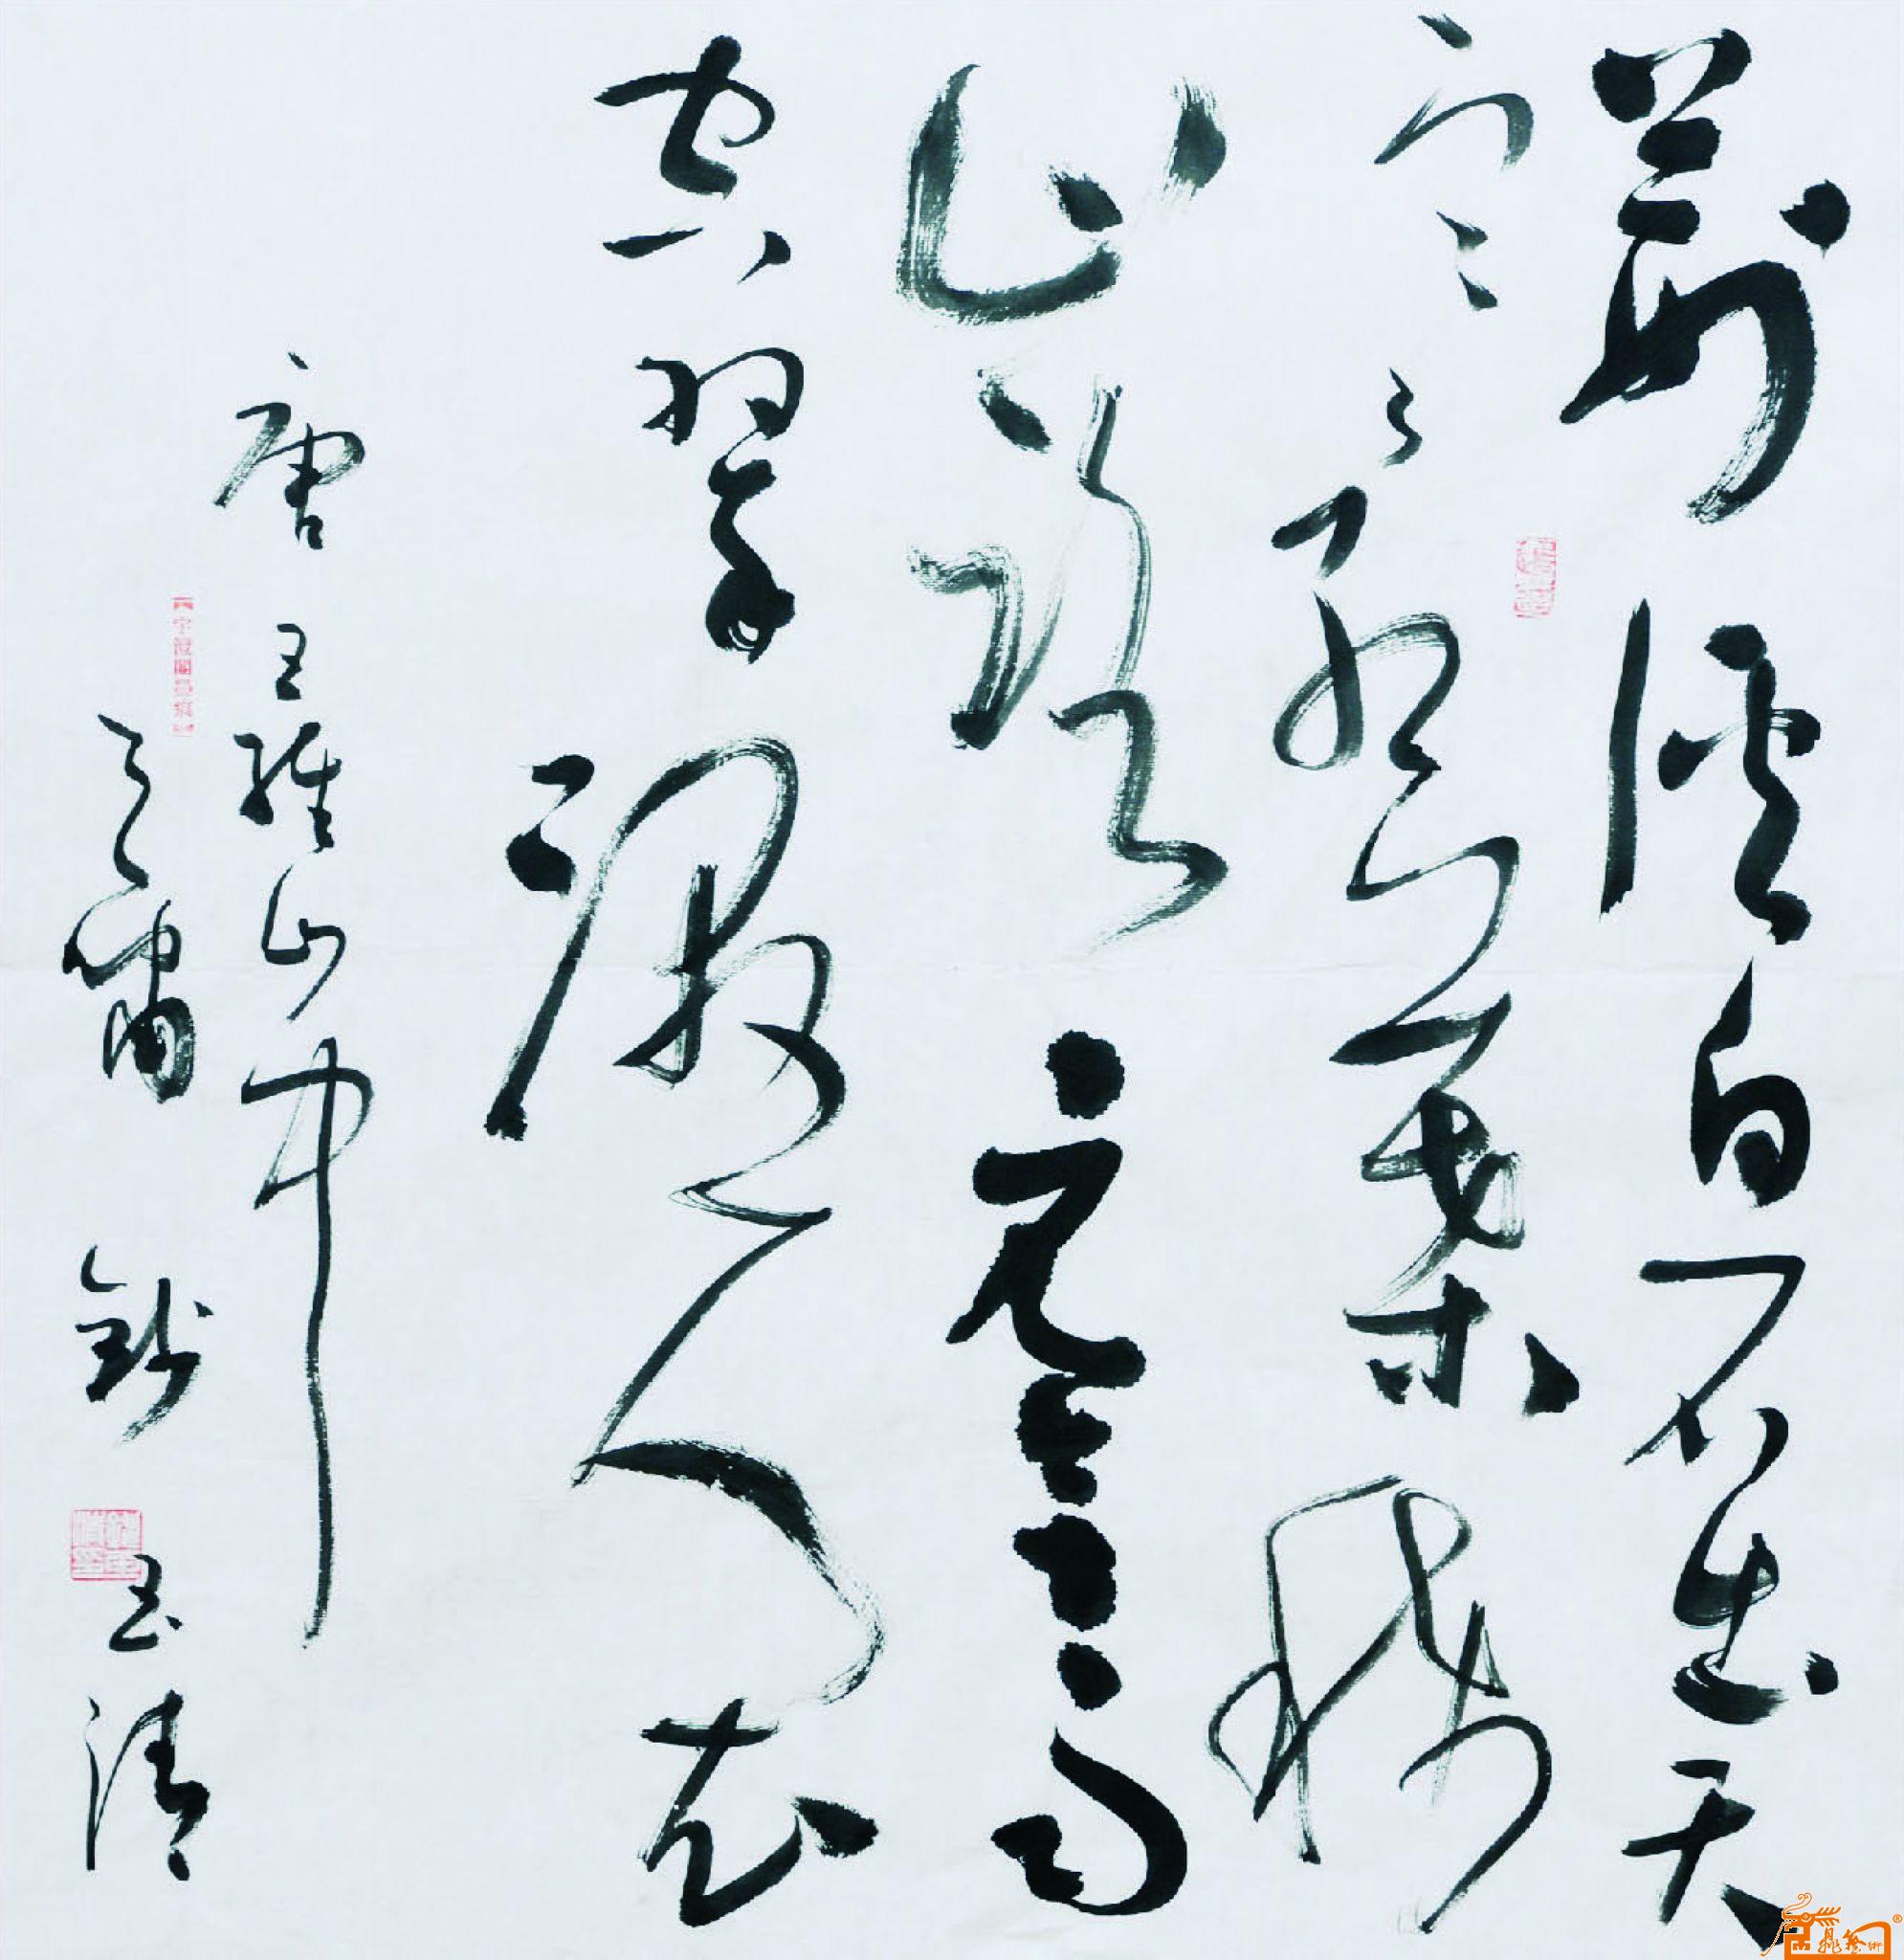 荊溪白石出天
寒紅葉稀
山路元無雨
空翠濕人衣
唐王維山中
玉清